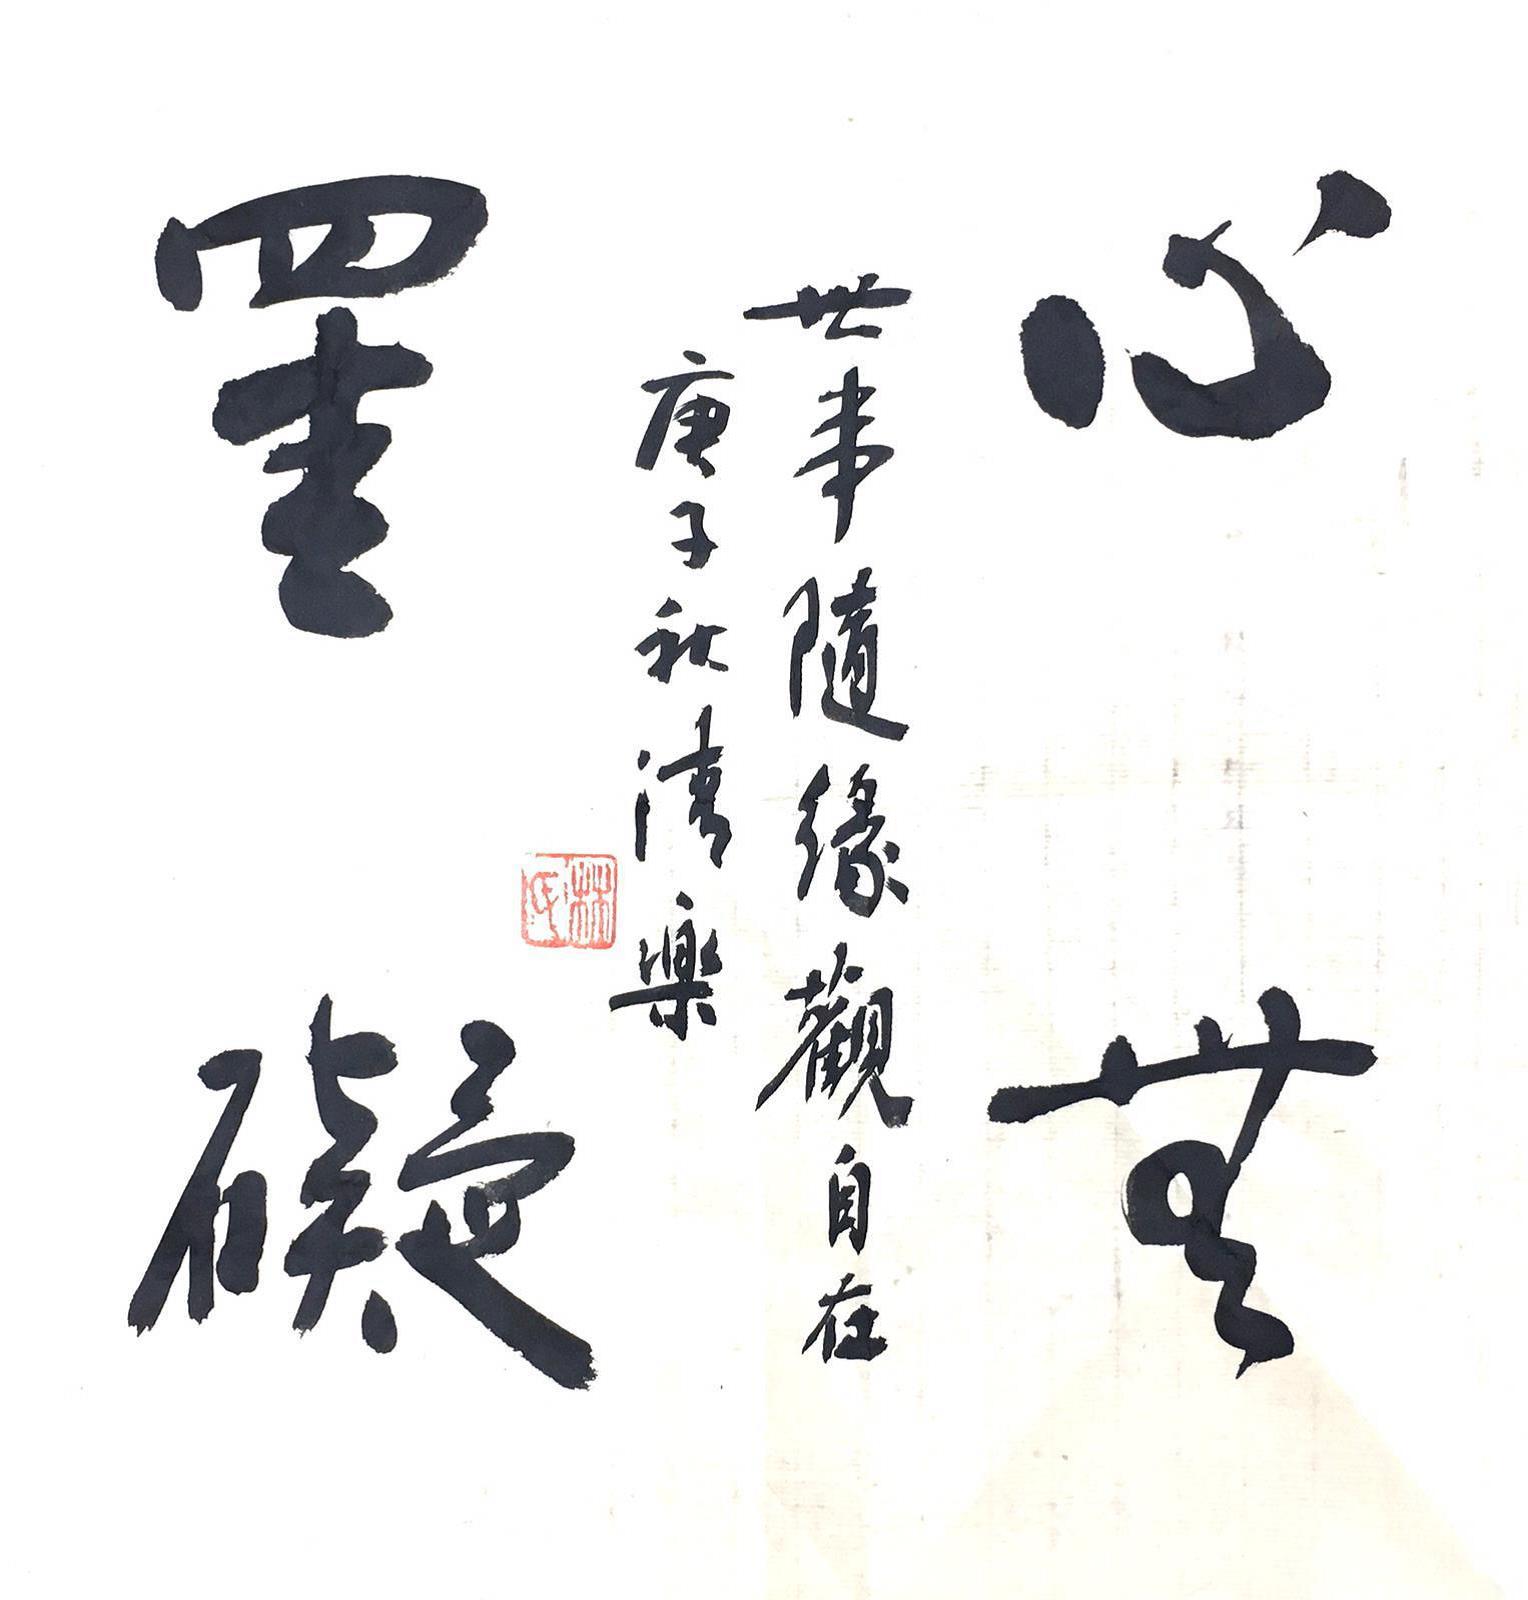 心無
罣礙
世事隨緣觀自在
庚子秋清樂
林氏